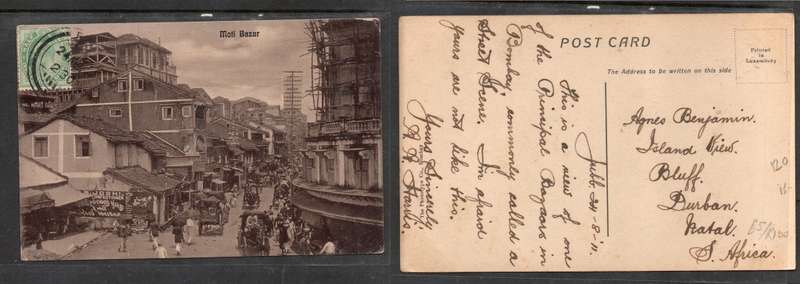 Moti Bazar
POST CARD
The Address to be written on this side
Printed
in
Luxemburg
Jubb. 24-8-11.
This is a view of one
of the Principal Bazaars in
Bombay, commonly called a
Street Scene. I'm afraid
yours are not like this.
Yours Sincerely
A. R. Harris.
Agnes Benjamin.
Island View.
Bluff.
Durban.
Natal.
S. Africa.
120